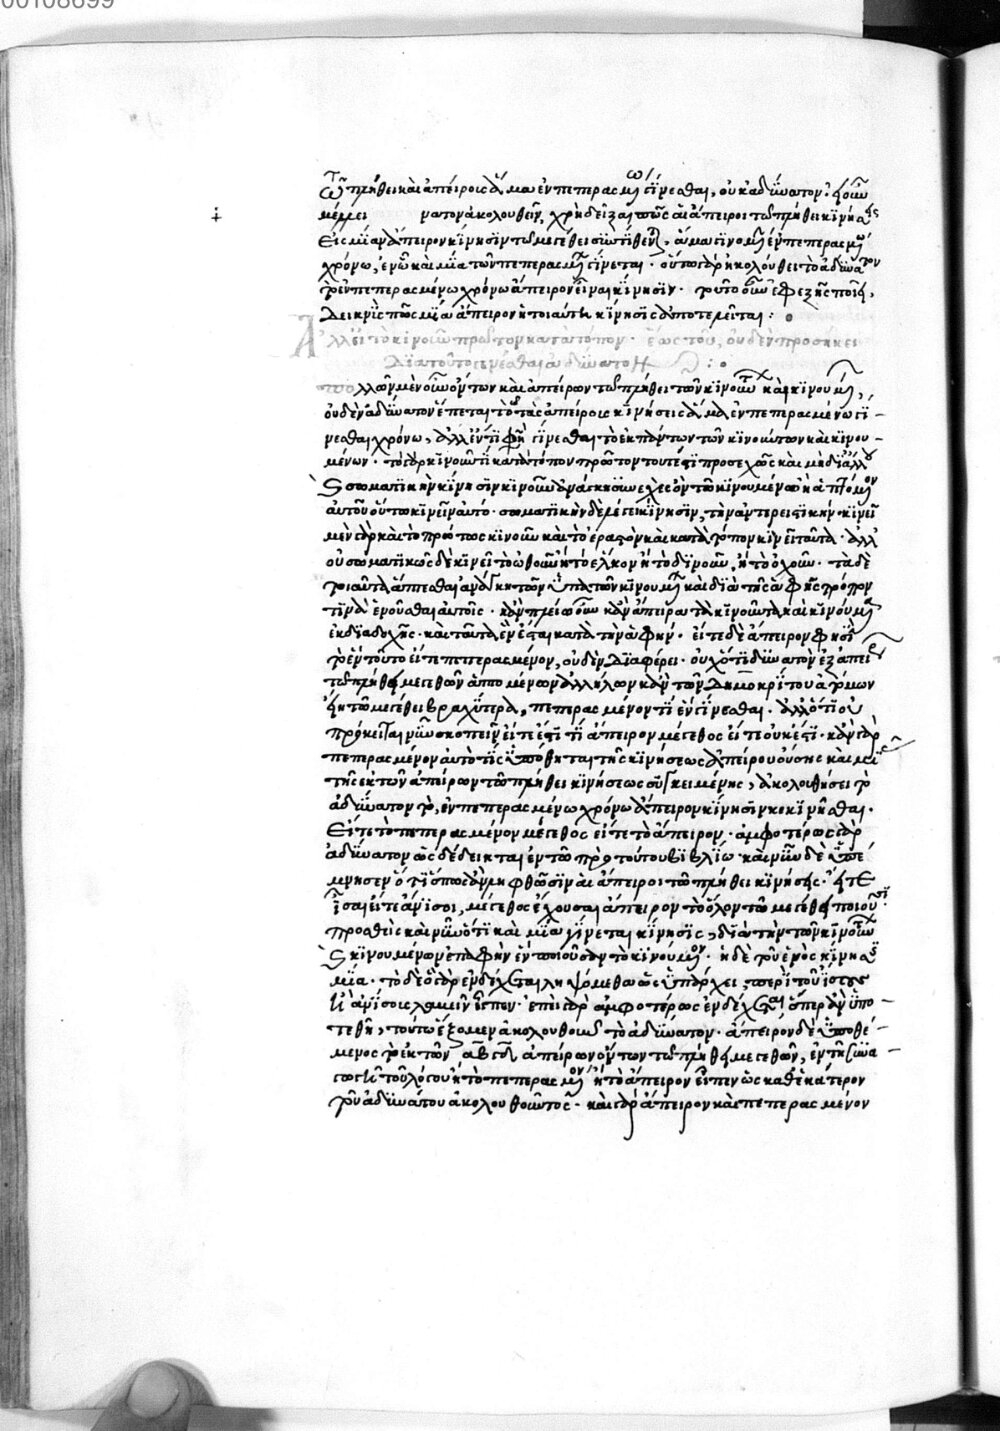 00108699
τῷ πλήθει καὶ ἀπείροις ἅμα ἐν πεπερασμένῳ γίνεσθαι, οὐκ ἀδύνατον
ἀκολουθεῖν, χρὴ δεῖξαι πῶς αἱ ἄπειροι τῷ πλήθει κινήσεις
εἰς μίαν ἄπειρον κίνησιν τῷ μεγέθει συντιθέν ἅμα γινομεν ἐν πεπερασμένῳ
χρόνῳ, ἐν ᾧ καὶ μία τῶν πεπερασμένων γίνεται. οὕτω γὰρ ἠκολούθει τὸ ἀδύνατον
τὸ ἐν πεπερασμένῳ χρόνῳ ἄπειρον εἶναι κίνησιν. τοῦτο οὖν ἐφεξῆς ποιεῖ,
δεικνὺς πῶς μία ἄπειρον ἡ τοιαύτη κίνησις ἀποτελεῖται :
Ἀλλ' εἰ τὸ κινοῦν πρῶτον κατὰ τόπον. ἕως τοῦ, οὐδὲν προσήκει
διὰ τοῦτο γενέσθαι ἀδύνατον
πολλῶν μὲν οὖν ὄντων καὶ ἀπείρων τῷ πλήθει τῶν κινούντων καὶ κινουμένων,
οὐδὲν ἀδύνατον ἕπεται τὸ τὰς ἀπείροις κινήσεις ἅμα ἐν πεπερασμένῳ γί-
νεσθαι χρόνῳ, ἀλλ' ἕν τι φησὶ γίνεσθαι τὸ ἐκ πάντων τῶν κινούντων καὶ κινου-
μένων. τὸ γὰρ κινοῦν τι κατὰ τόπον πρῶτον τουτέστι προσεχῶς καὶ μὴ δι' ἄλλου
σωματικὴν κίνησιν κινοῦν ἀνάγκη συνεχὲς ὂν τῷ κινουμένῳ ἢ ἁπτόμενον
αὐτοῦ οὕτω κινεῖν αὐτό. σωματικὴν δὲ λέγει κίνησιν, τὴν ἀντερειστικήν. κινεῖ
μὲν γὰρ καὶ τὸ πρώτως κινοῦν καὶ τὸ ἐραστὸν καὶ κατὰ τόπον κινεῖ ταῦτα. ἀλλ'
οὐ σωματικῶς δὲ κινεῖ τὸ ὠθοῦν ἢ τὸ ἕλκον ἢ τὸ δινοῦν, ἢ τὸ ὀχοῦν. τὰ δὲ
τοιαῦτα ἅπτεσθαι ἀνάγκη τῶν ὑπ' αὐτῶν κινουμένων καὶ διὰ τῆς ἁφῆς τρόπον
τινὰ ἑνοῦσθαι αὐτοῖς. κἂν πλείω οὖν κἂν ἄπειρα τὰ κινοῦντα καὶ κινούμενα
ἐκ διαδοχῆς. καὶ ταῦτα ἓν ἔσται κατὰ τὴν ἁφήν. εἴτε δὲ ἄπειρον φησὶ
τὸ ἓν τοῦτο εἴτε πεπερασμένον, οὐδὲν διαφέρει. οὐχ ὅτι δυνατὸν ἐξ ἀπείρων
τῷ πλήθει μεγεθῶν ἁπτομένων ἀλλήλων κἂν τῶν Δημοκρίτου ἀτόμων
ᾖ τῷ μεγέθει βραχύτερα, πεπερασμένον τι ἓν γίνεσθαι. ἀλλ' ὅτι οὐ
πρόκειται νῦν σκοπεῖν εἴτε ἐστί τι ἄπειρον μέγεθος εἴτε οὐκ ἔστι. κἂν γὰρ
πεπερασμένον αὐτό τις ὑπόθηται τῆς κινήσεως ἀπείρου οὔσης καὶ μιᾶς
τῆς ἐκ τῶν ἀπείρων τῷ πλήθει κινήσεως συγκειμένης, ἀκολουθήσει τὸ
ἀδύνατον τὸ, ἐν πεπερασμένῳ χρόνῳ ἄπειρον κίνησιν κεκινῆσθαι.
εἴτε τὸ πεπερασμένον μέγεθος εἴτε τὸ ἄπειρον. ἀμφοτέρως γὰρ
ἀδύνατον ὡς δέδεικται ἐν τῷ πρὸ τούτου βιβλίῳ. καὶ νῦν δὲ ὑπέ
μνησεν ὅτι ὅπως ἂν ληφθῶσιν αἱ ἄπειροι τῷ πλήθει κινήσεις. εἴτε
ἴσαι εἴτε ἄνισοι, μέγεθος ἔχουσαι ἄπειρον τὸ ὅλον τῷ μεγέθει ποιοῦσι.
προσθεὶς καὶ νῦν ὅτι καὶ μία γίνεται κίνησις, διὰ τὴν τῶν κινούντων
κινουμένων ἐπαφὴν ἓν ποιοῦσαν τὸ κινούμενον. ἡ δὲ τοῦ ἑνὸς κίνησις
μία. τὸ δὲ ὃ γὰρ ἐνδέχεται ληψόμεθα ὡς ὑπάρχει, περὶ τοῦ ἴσους
ἢ ἀνίσους λαμβάνειν εἶπεν. ἐπεὶ γὰρ ἀμφοτέρως ἐνδέχεται ὅπερ ἂν ὑπο-
τεθῇ, τούτῳ ἕξομεν ἀκολουθοῦν τὸ ἀδύνατον. ἄπειρον δὲ ὑποθέ-
μενος τὸ ἐκ τῶν ΑΒΓΔ ἀπείρων ὄντων τῷ πλήθει μεγεθῶν, ἐν τῇ συνα-
γωγῇ τοῦ λόγου ἢ τὸ πεπερασμένον ἢ τὸ ἄπειρον εἶπεν ὡς καθ' ἑκάτερον
τοῦ ἀδυνάτου ἀκολουθοῦντος. καὶ γὰρ ἄπειρον καὶ πεπερασμένον